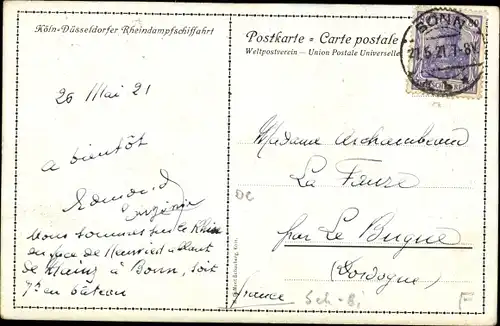 Köln-Düsseldorfer Rheindampfschiffahrt
Postkarte = Carte postale
Weltpostverein — Union Postale Universelle
BONN
7-8V
20 Mai 21
A bientôt
Madame Archambeau
La Faure
par Le Bugue
(Dordogne)
france
Nous sommes sur le Rhin
en face de allant
de Mainz à Bonn, soit
7h en bateau
DC
Sch-Bi
F